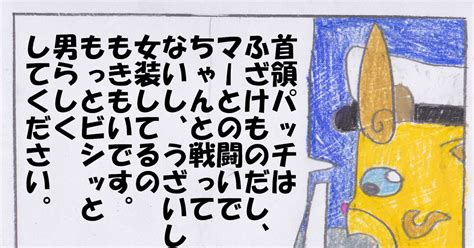 首領パッチは
ふざけものだし、
マーとの闘いで
ちゃんと戦って
ないし、うざいし
女装してるの
もきもいです。
もっとビシッと
男らしく
してください。